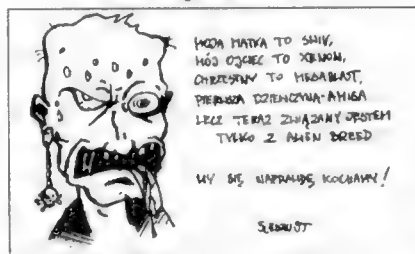 MOJA MATKA TO SWIV,
MÓJ OJCIEC TO XENON,
CHRZESTNY TO MEGABLAST,
PIERWSZA DZIEWCZYNA-AMIGA
LECZ TERAZ ZWIĄZANY JESTEM
TYLKO Z ALIEN BREED
MY SIĘ NAPRAWDĘ KOCHAMY!